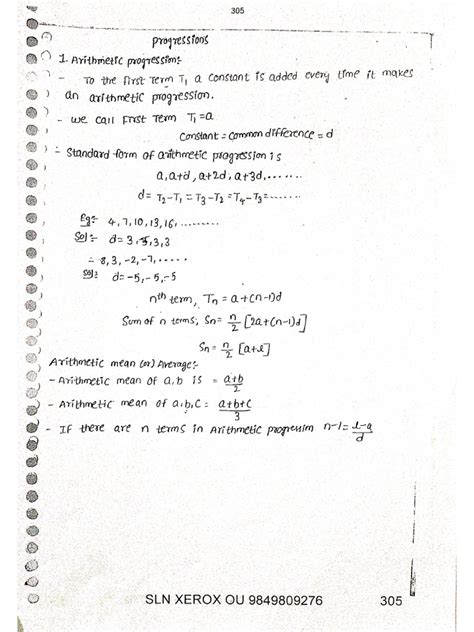 305
progressions
1. Arithmetic progression:-
- To the first Term T₁ a constant is added every time it makes
an arithmetic progression.
- we call First Term T₁=a
Constant = Common difference = d
- Standard form of arithmetic progression is
a, a+d, a+2d, a+3d,.......
d= T₂-T₁ = T₃-T₂ = T₄-T₃=.......
Eg:- 4, 7, 10, 13, 16,.......
Sol:- d= 3, 3, 3, 3
:- 8, 3, -2, -7, .....
Sol:- d= -5, -5, -5
nth term, Tn = a+(n-1)d
Sum of n terms, Sn= n/2 [2a+(n-1)d]
Sn= n/2 [a+l]
Arithmetic mean (or) Average:-
- Arithmetic mean of a,b is = a+b/2
- Arithmetic mean of a,b,c = a+b+c/3
- If there are n terms in Arithmetic progression n-1= l-a/d
SLN XEROX OU 9849809276 305